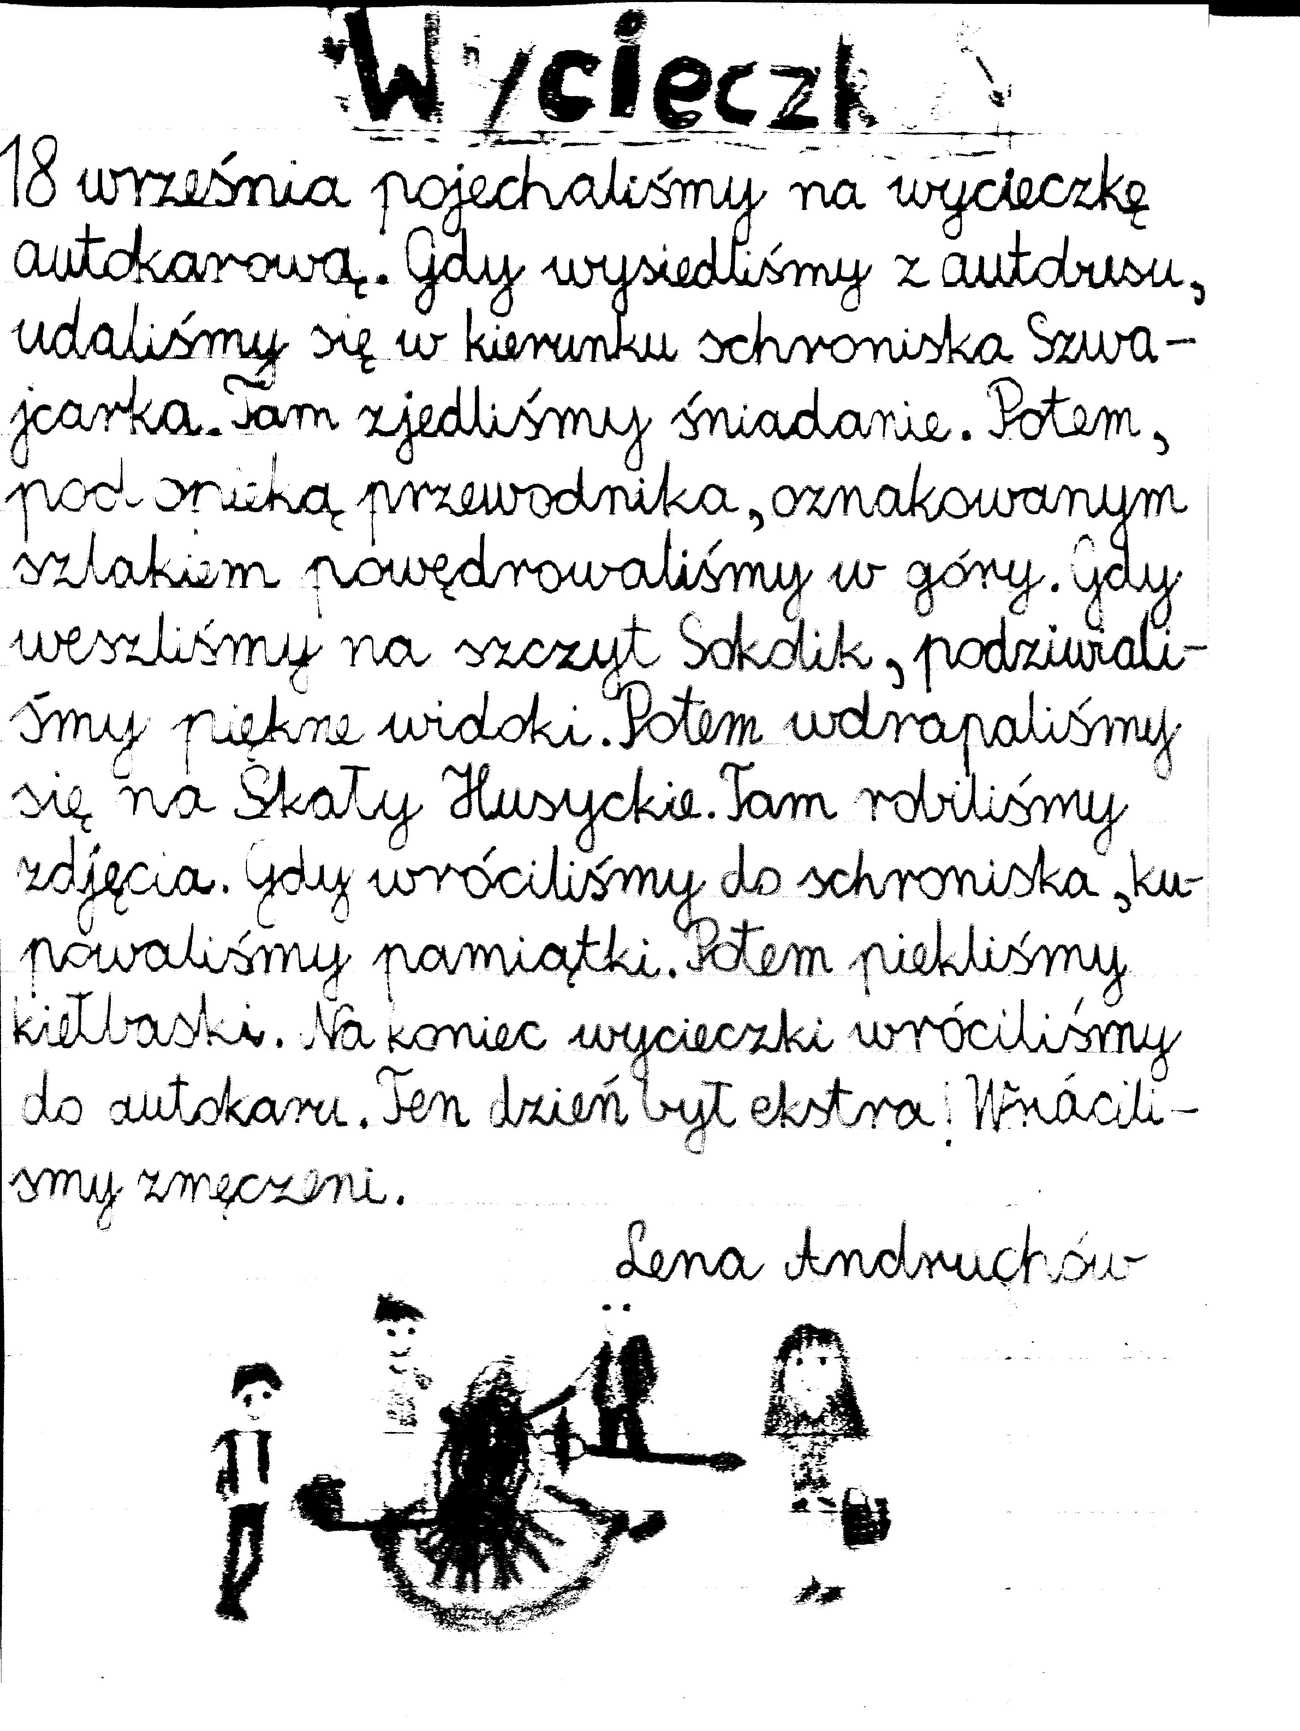 Wycięczk
18 września pojechaliśmy na wycieczkę
autokarową. Gdy wysiedliśmy z autobusu,
udaliśmy się w kierunku schroniska Szwa-
jcarka. Tam zjedliśmy śniadanie. Potem,
pod opieką przewodnika, oznakowanym
szlakiem powędrowaliśmy w góry. Gdy
weszliśmy na szczyt Sokolik, podziwiali-
śmy piękne widoki. Potem wdrapaliśmy
się na Skały Husyckie. Tam robiliśmy
zdjęcia. Gdy wróciliśmy do schroniska, ku-
powaliśmy pamiątki. Potem piekliśmy
kiełbaski. Na koniec wycieczki wróciliśmy
do autokaru. Ten dzień był ekstra!
smy zmęczeni.
Lena Andruchów